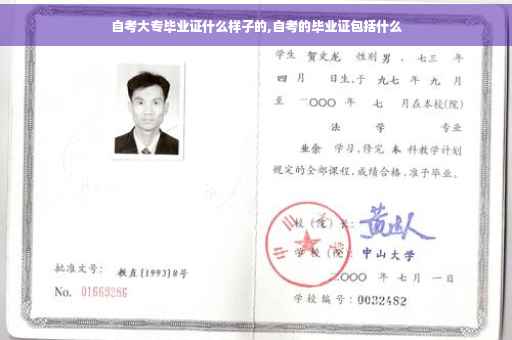 自考大专毕业证什么样子的,自考的毕业证包括什么
学生 贺文龙 性别 男 、七三 年
四 月 日生,于 九七 年 九 月
至 二〇〇〇 年 七 月在本校(院)
法 学 专业
业余 学习,修完 本 科教学计划
规定的全部课程,成绩合格,准予毕业。
校 (院) 长:
学 校 (院): 中山大学
二〇〇〇 年 七 月 一 日
学校编号: 0032482
批准文号: 教直[1993]8号
No. 01669286